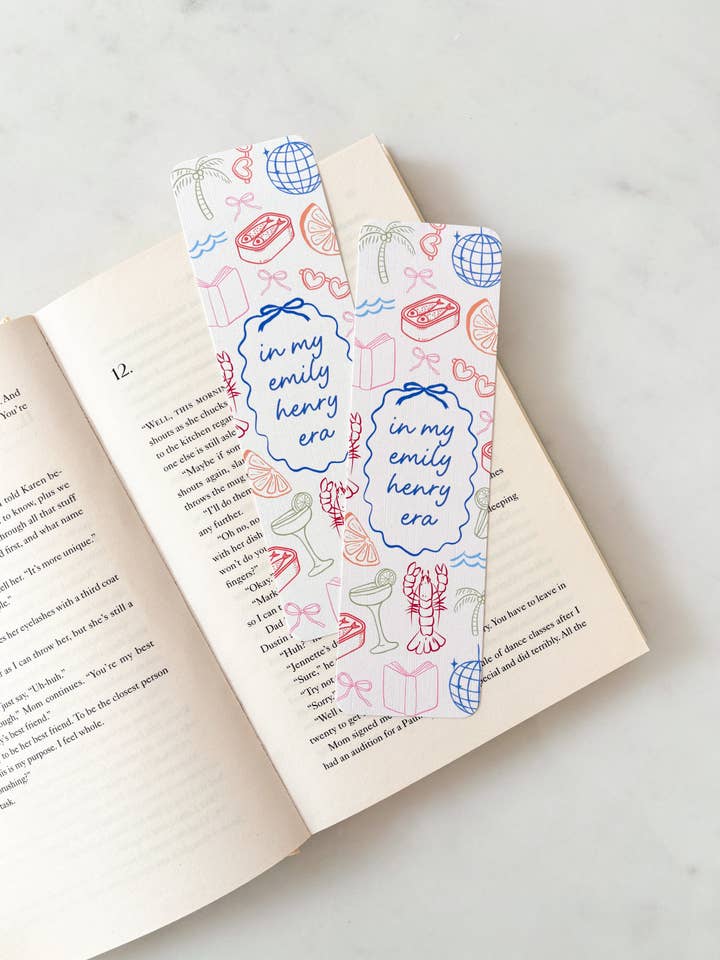 And
You're
told Karen be-
to know, plus we
through all that stuff
first, and what name
ell her. "It's more unique."
her eyelashes with a third coat
r as I can throw her, but she's still a
just say, "Uh-huh."
Mom continues. "You're my best
y's best friend."
to be her best friend. To be the closest person
is is my purpose. I feel whole.
task.
12.
"WELL, THIS
shouts as she chucks
to the kitchen
one else is still
"Maybe if
shouts again,
throws the
"I'll do
any further.
"Oh no,
with her
won't do
fingers?"
"Okay,
"Mark
so I can
Dad
Dustin
"Huh?
"Jennette's
"Sure,"
"Try not
"Sorry,
"Well
twenty to get
Mom signed
had an audition for a
in my
emily
henry
era
in my
emily
henry
era
You have to leave in
of dance classes after I
special and did terribly. All the